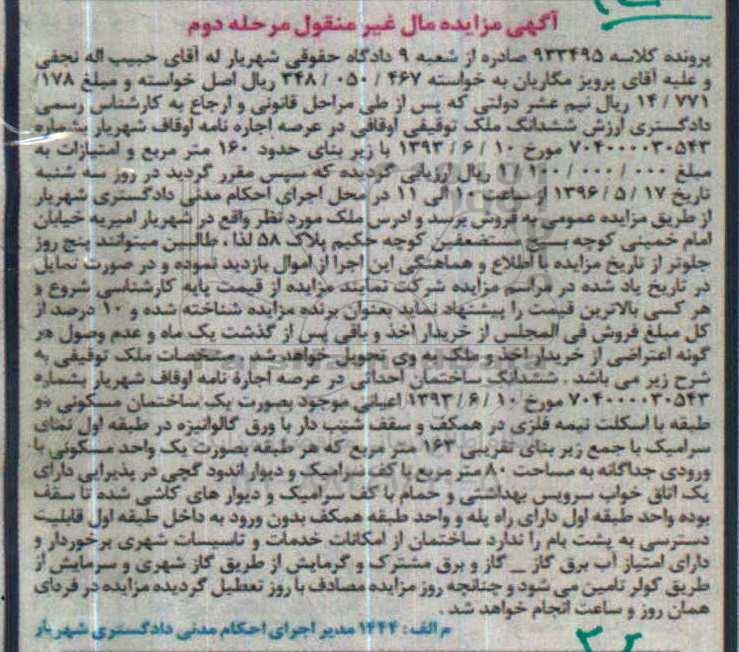 آگهی مزایده مال غیر منقول مرحله دوم
پرونده کلاسه ۹۳۳۴۹۵ صادره از شعبه ۹ دادگاه حقوقی شهریار له آقای حبیب اله نجفی
و علیه آقای پرویز مگاریان به خواسته ۴۶۷ / ۰۵۰ / ۳۴۸ ریال اصل خواسته و مبلغ ۱۷۸/
۷۷۱ / ۱۴ ریال نیم عشر دولتی که پس از طی مراحل قانونی و ارجاع به کارشناس رسمی
دادگستری ارزش ششدانگ ملک توقیفی اوقافی در عرصه اجاره نامه اوقاف شهریار بشماره
۷۰۴۰۰۰۰۳۰۵۴۳ مورخ ۱۰ / ۶ / ۱۳۹۳ با زیر بنای حدود ۱۶۰ متر مربع و امتیازات به
مبلغ ۰۰۰ / ۰۰۰ / ریال ارزیابی گردیده که سپس مقرر گردید در روز سه شنبه
تاریخ ۱۷ / ۵ / ۱۳۹۶ از ساعت ۱۰ الی ۱۱ در محل اجرای احکام مدنی دادگستری شهریار
از طریق مزایده عمومی به فروش برسد و ادرس ملک مورد نظر واقع در شهریار امیریه خیابان
امام خمینی کوچه بسیج مستضعفین کوچه حکیم پلاک ۵۸ لذا ، طالبین میتوانند پنج روز
جلوتر از تاریخ مزایده با اطلاع و هماهنگی این اجرا از اموال بازدید نموده و در صورت تمایل
در تاریخ یاد شده در مراسم مزایده شرکت نمایند مزایده از قیمت پایه کارشناسی شروع و
هر کسی بالاترین قیمت را پیشنهاد نماید بعنوان برنده مزایده شناخته شده و ۱۰ درصد از
کل مبلغ فروش فی المجلس از خریدار اخذ و باقی پس از گذشت یک ماه و عدم وصول هر
گونه اعتراضی از خریدار اخذ و ملک به وی تحویل خواهد شد . مشخصات ملک توقیفی به
شرح زیر می باشد . ششدانگ ساختمان احداثی در عرصه اجاره نامه اوقاف شهریار بشماره
۷۰۴۰۰۰۰۳۰۵۴۳ مورخ ۱۰ / ۶ / ۱۳۹۳ اعیانی موجود بصورت یک ساختمان مسکونی دو
طبقه با اسکلت نیمه فلزی در همکف و سقف شیب دار با ورق گالوانیزه در طبقه اول نمای
سرامیک با جمع زیر بنای تقریبی ۱۶۲ متر مربع که هر طبقه بصورت یک واحد مسکونی با
ورودی جداگانه به مساحت ۸۰ متر مربع با کف سرامیک و دیوار اندود گچی در پذیرایی دارای
یک اتاق خواب سرویس بهداشتی و حمام با کف سرامیک و دیوار های کاشی شده تا سقف
بوده واحد طبقه اول دارای راه پله و واحد طبقه همکف بدون ورود به داخل طبقه اول قابلیت
دسترسی به پشت بام را ندارد ساختمان از امکانات خدمات و تاسیسات شهری برخوردار و
دارای امتیاز آب برق گاز _ گاز و برق مشترک و گرمایش از طریق گاز شهری و سرمایش از
طریق کولر تامین می شود و چنانچه روز مزایده مصادف با روز تعطیل گردیده مزایده در فردای
همان روز و ساعت انجام خواهد شد .
م الف : ۱۴۴۴ مدیر اجرای احکام مدنی دادگستری شهریار